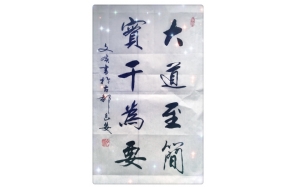 大道至簡
實干為要
書於古都長安